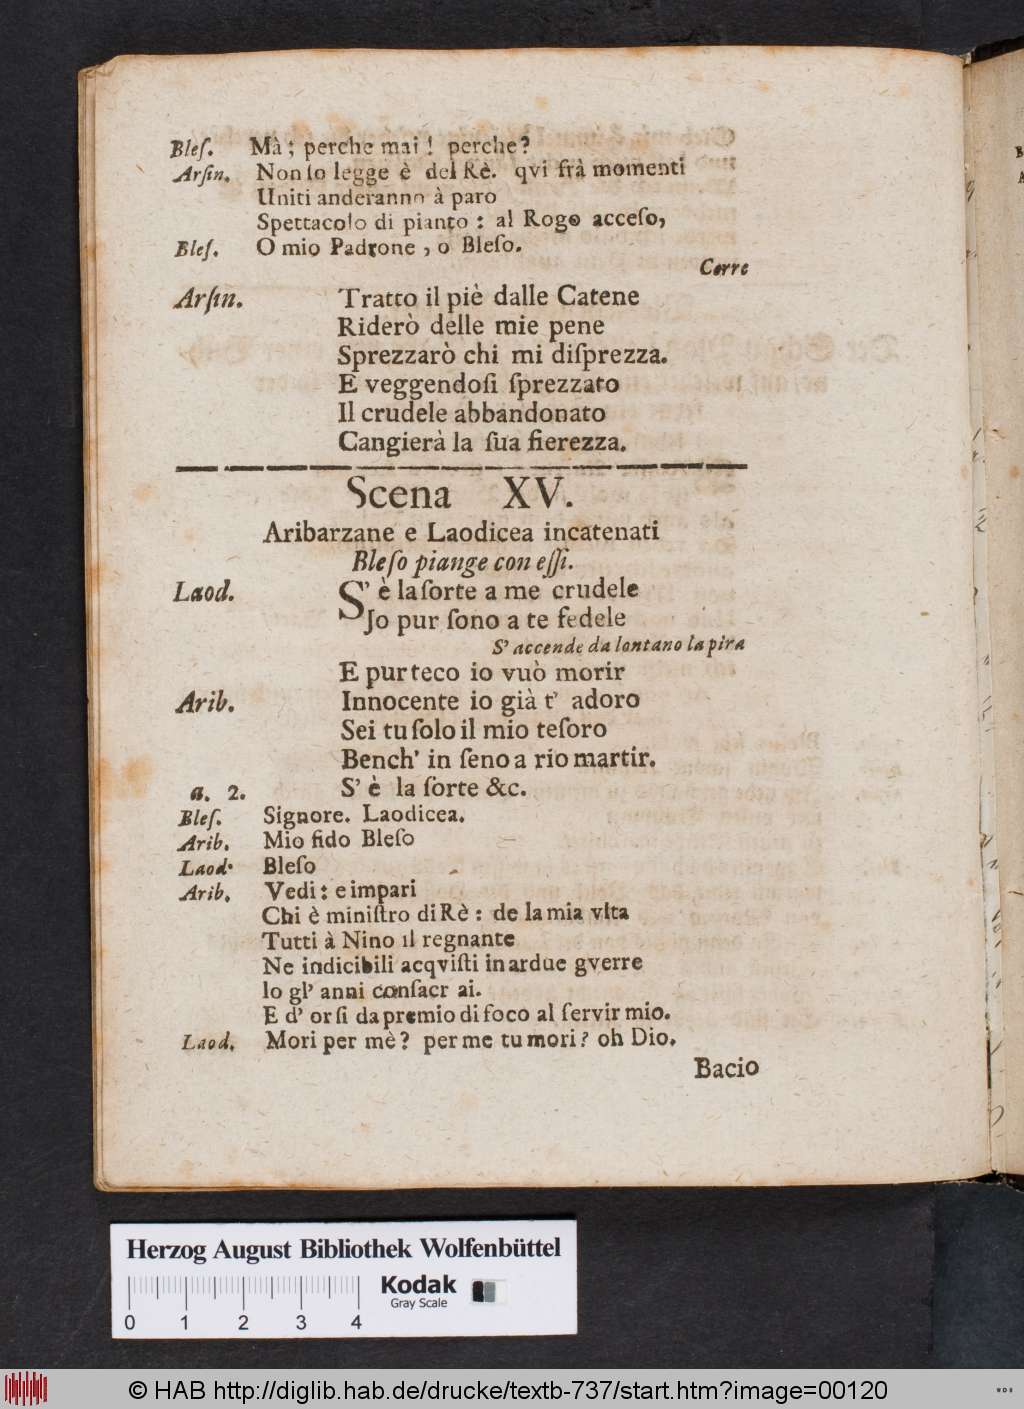 Bleſ. Mà; perche mai! perche?
Arſin. Non ſo legge è del Rè. qvi frà momenti
Uniti anderanno à paro
Spettacolo di pianto: al Rogo acceſo,
Bleſ. O mio Padrone, o Bleſo.
Corre
Arſin. Tratto il piè dalle Catene
Riderò delle mie pene
Sprezzarò chi mi diſprezza.
E veggendoſi ſprezzato
Il crudele abbandonato
Cangierà la ſua fierezza.
Scena XV.
Aribarzane e Laodicea incatenati
Bleſo piange con eſſi.
Laod. S' è la ſorte a me crudele
Jo pur ſono a te fedele
S' accende da lontano la pira
E pur teco io vuò morir
Arib. Innocente io già t' adoro
Sei tu ſolo il mio teſoro
Bench' in ſeno a rio martir.
a. 2. S' è la ſorte &c.
Bleſ. Signore. Laodicea.
Arib. Mio fido Bleſo
Laod. Bleſo
Arib. Vedi: e impari
Chi è miniſtro di Rè: de la mia vita
Tutti à Nino il regnante
Ne indicibili acqviſti in ardue gverre
Io gl' anni conſacr ai.
E d' or ſi da premio di foco al ſervir mio.
Laod. Mori per mè? per me tu mori? oh Dio.
Bacio
Herzog August Bibliothek Wolfenbüttel
Kodak
Gray Scale
0 1 2 3 4
© HAB http://diglib.hab.de/drucke/textb-737/start.htm?image=00120